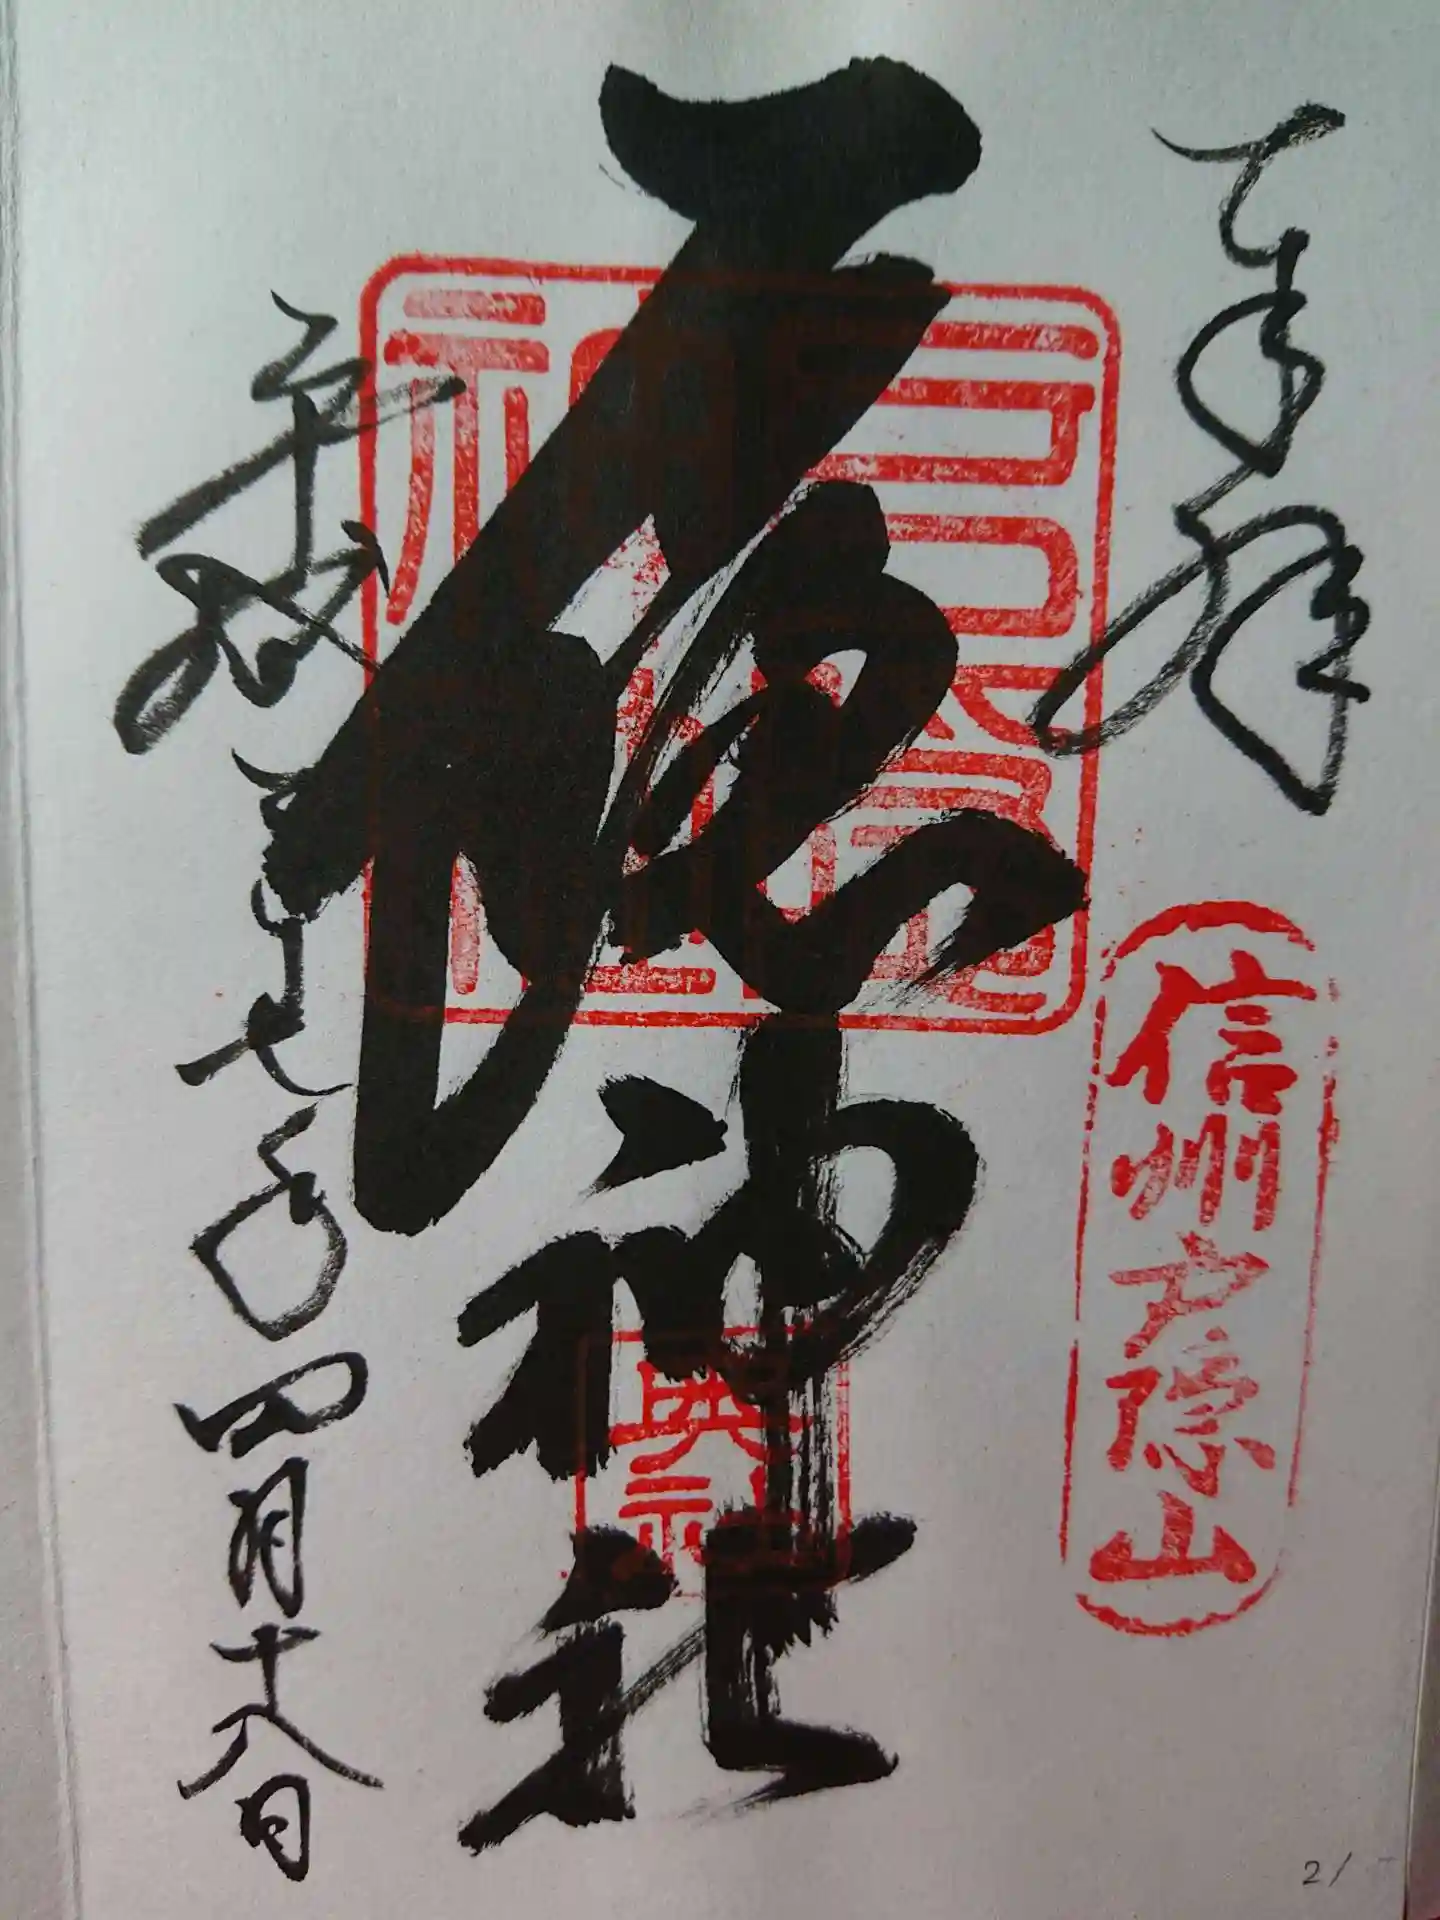 奉拝
信州戸隠山
戸隠神社
奥社
平成二十七年四月十八日
21